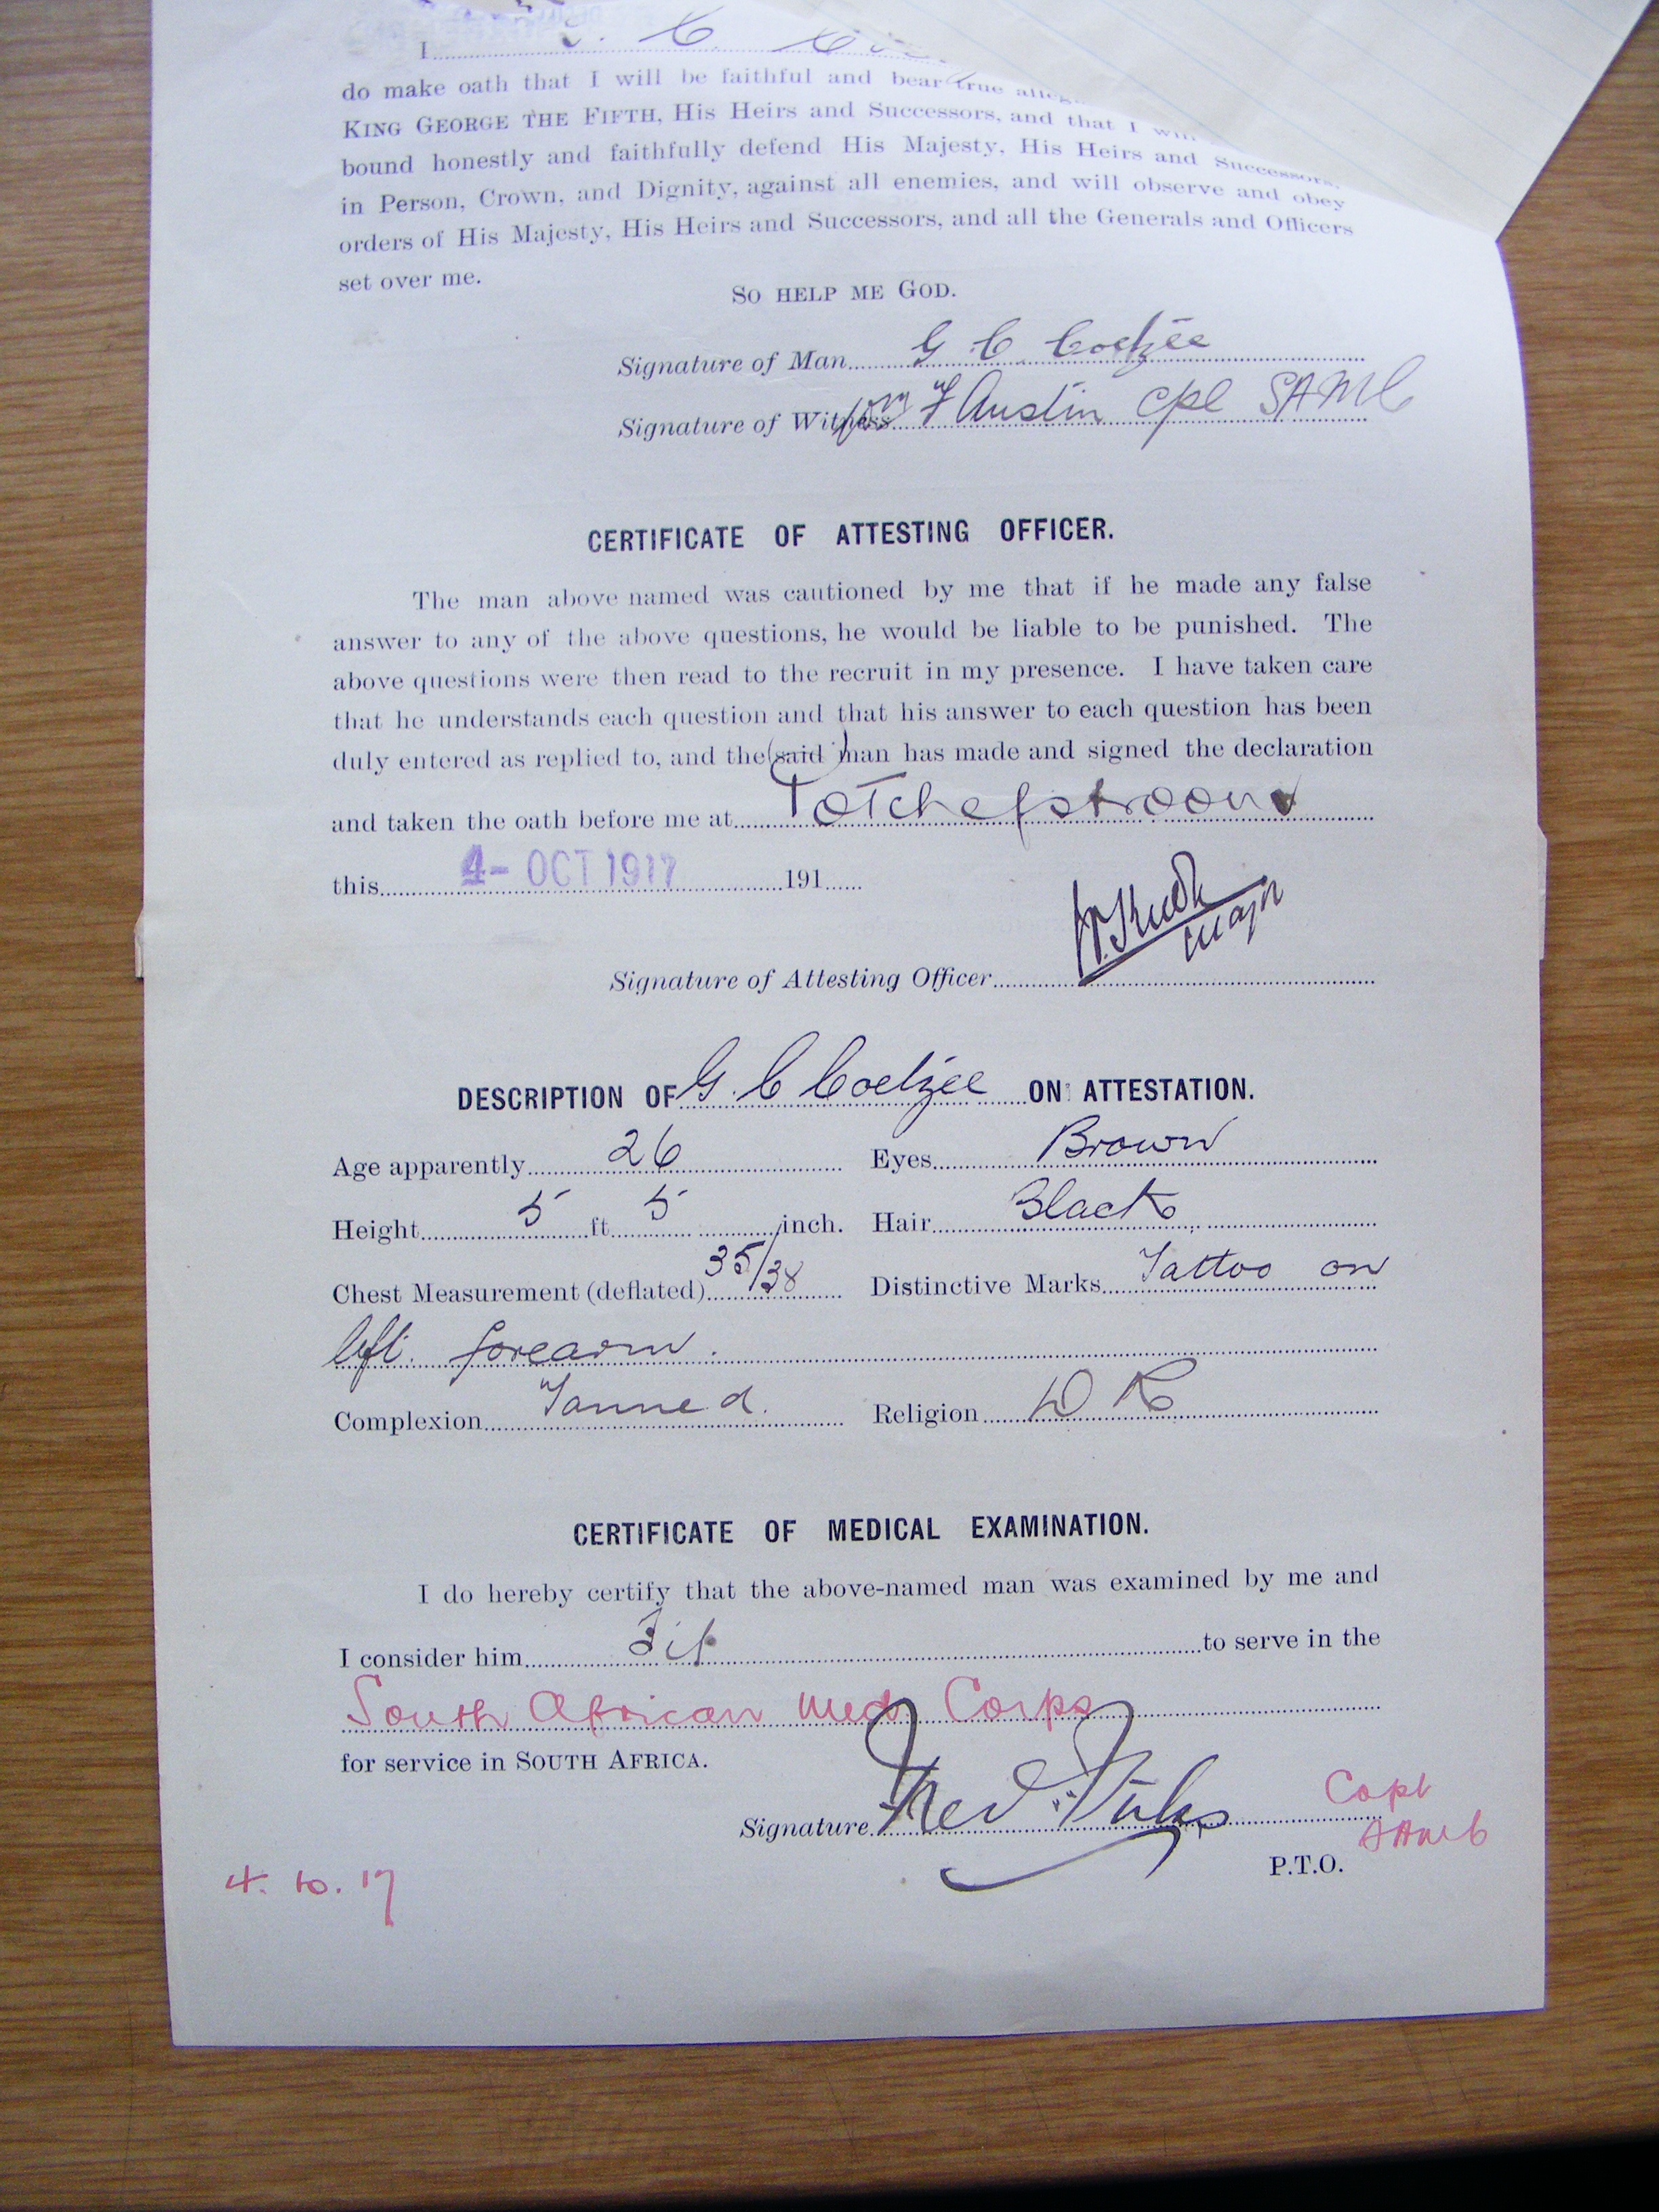 I
do make oath that I will be faithful and bear true
KING GEORGE THE FIFTH, His Heirs and Successors, and that I
bound honestly and faithfully defend His Majesty, His Heirs and Successors,
in Person, Crown, and Dignity, against all enemies, and will observe and obey
orders of His Majesty, His Heirs and Successors, and all the Generals and Officers
set over me.
SO HELP ME GOD.
Signature of Man G C Coetzee
Signature of Witness F Austin Cpl SAMC
CERTIFICATE OF ATTESTING OFFICER.
The man above named was cautioned by me that if he made any false
answer to any of the above questions, he would be liable to be punished. The
above questions were then read to the recruit in my presence. I have taken care
that he understands each question and that his answer to each question has been
duly entered as replied to, and the said man has made and signed the declaration
and taken the oath before me at Potchefstroom
this 4- OCT 1917 191
Signature of Attesting Officer Major
DESCRIPTION OF G. C Coetzee ON ATTESTATION.
Age apparently 26 Eyes Brown
Height 5 ft 5 inch. Hair Black
Chest Measurement (deflated) 35/38 Distinctive Marks Tattoo on
left forearm.
Complexion Tanned. Religion D R
CERTIFICATE OF MEDICAL EXAMINATION.
I do hereby certify that the above-named man was examined by me and
I consider him Fit to serve in the
South African Med Corps
for service in SOUTH AFRICA.
Signature Capt
SAMC
P.T.O.
4. 10. 17